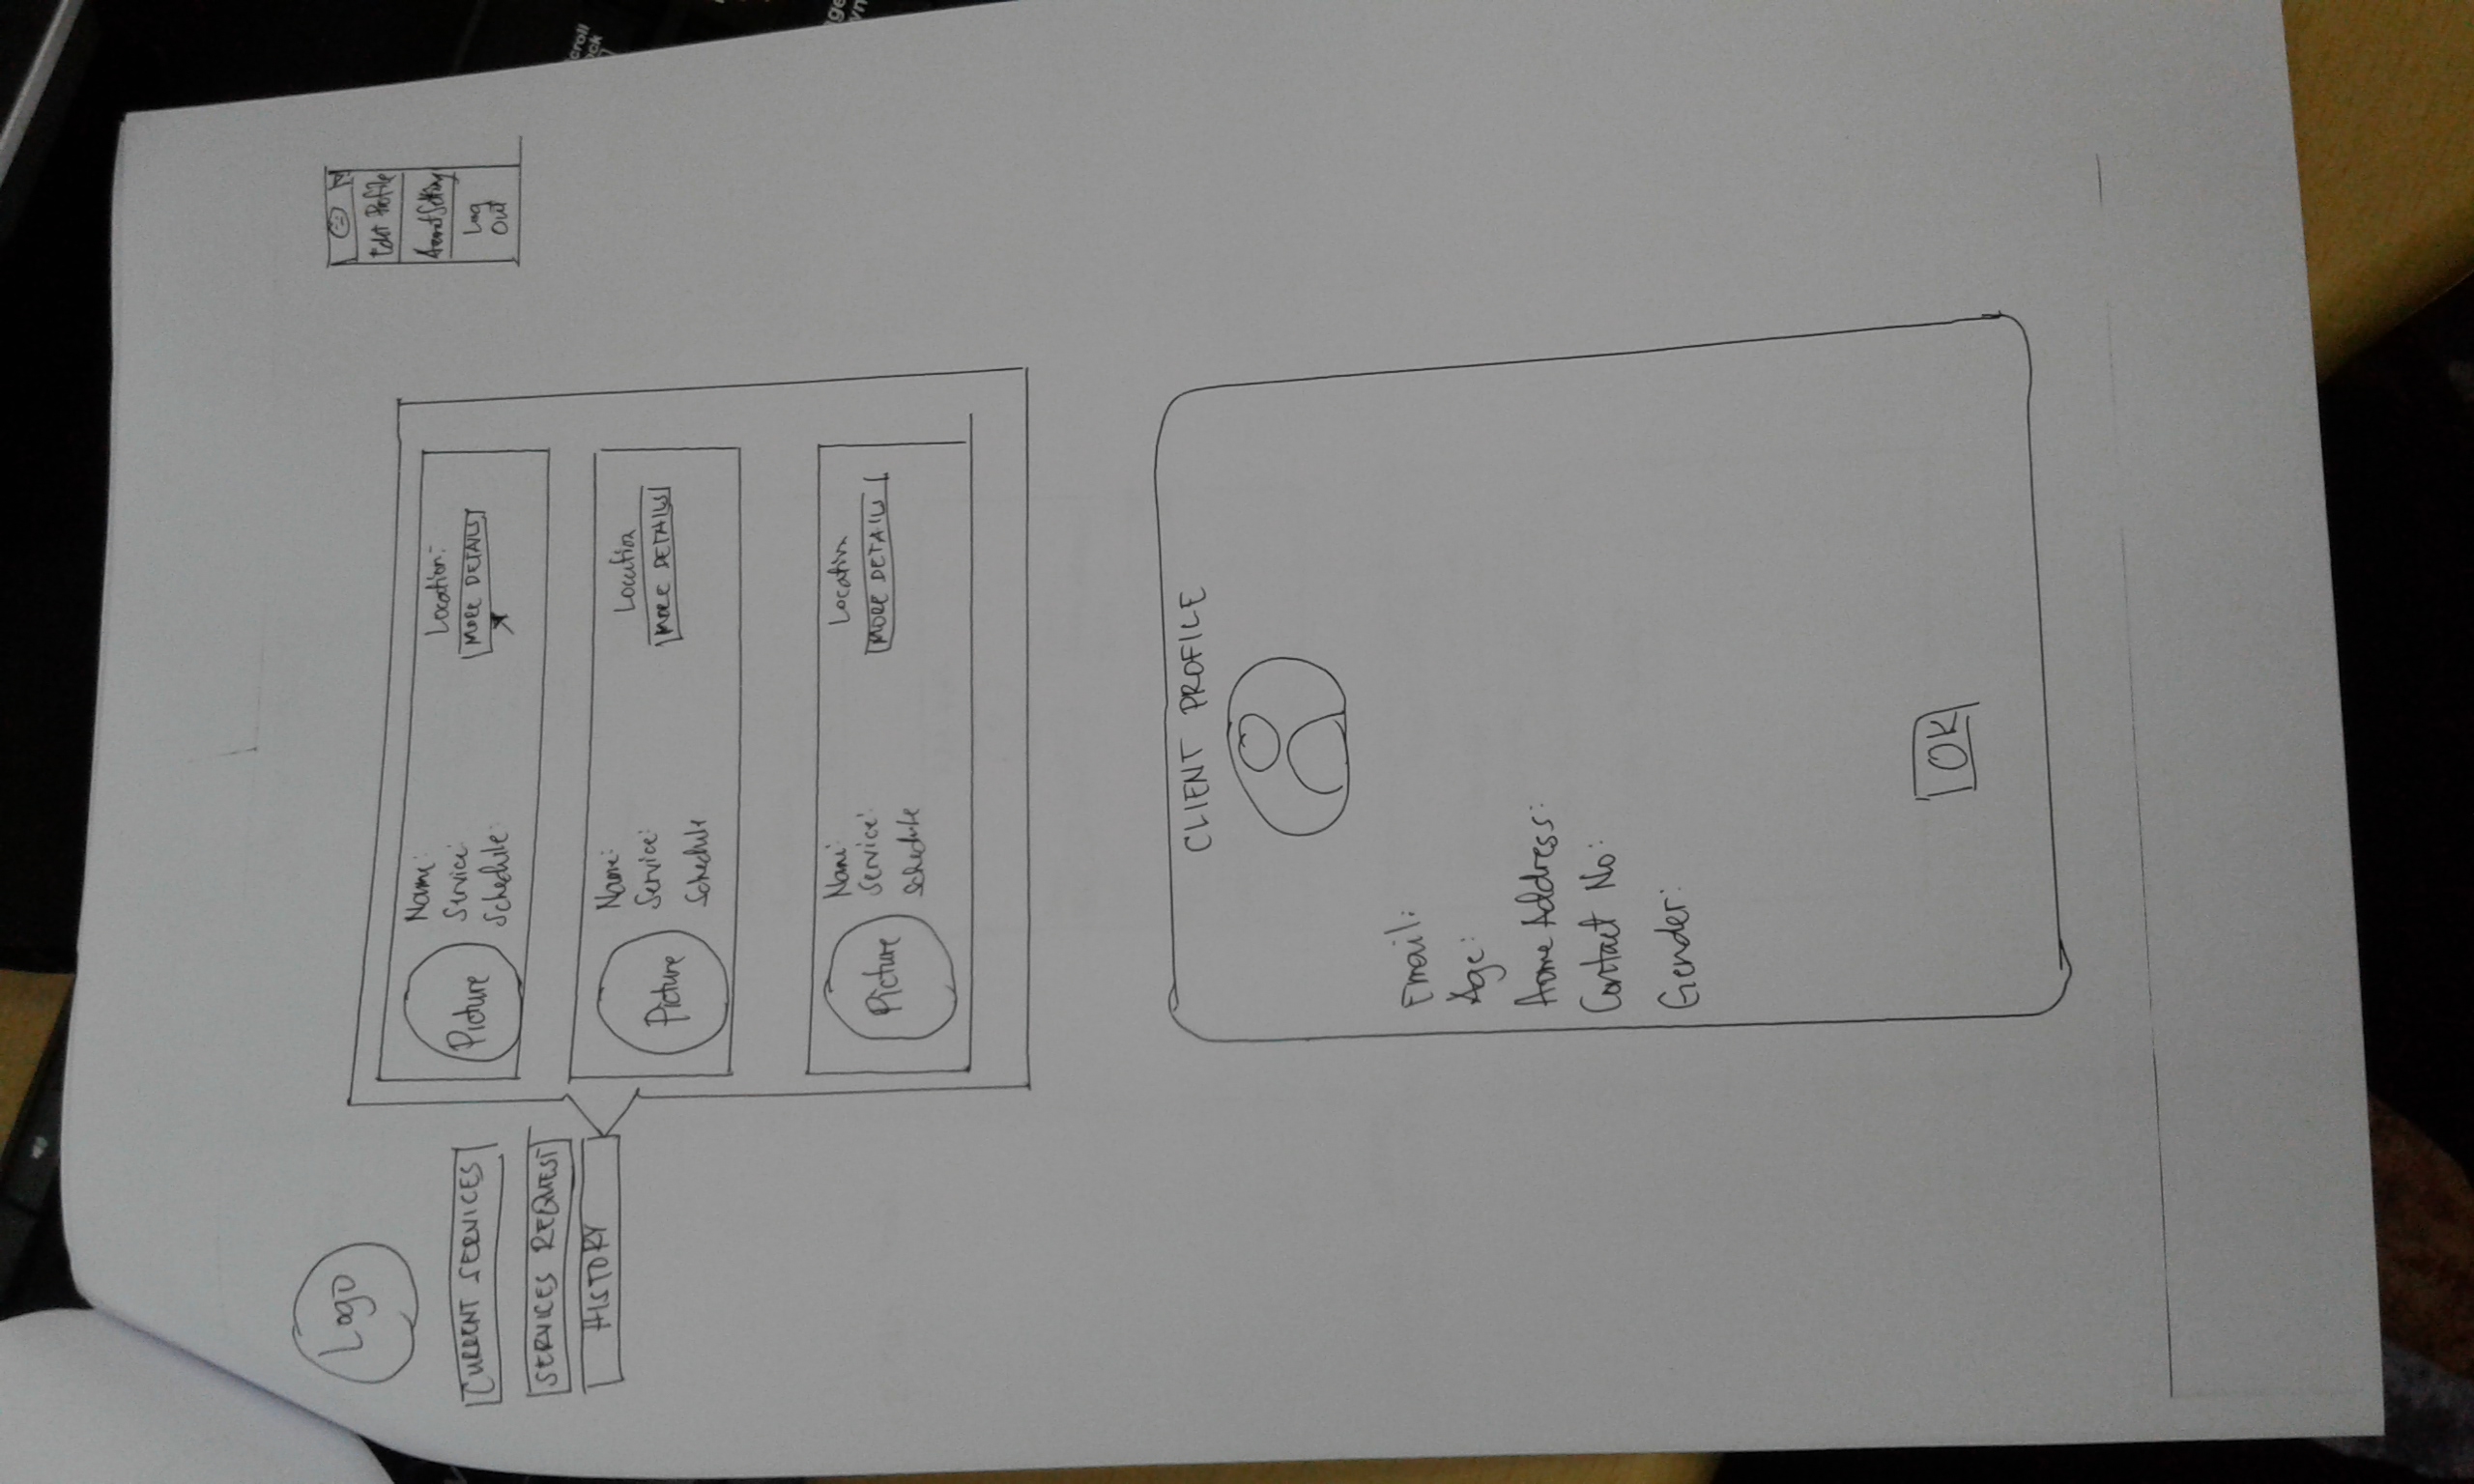 Logo
CURRENT SERVICES
SERVICES REQUEST
HISTORY
Picture
Name:
Service:
Schedule:
Location:
MORE DETAILS
Picture
Name:
Service:
Schedule
Location
MORE DETAILS
Picture
Name:
Service:
Schedule
Location
MORE DETAILS
Edit Profile
Log
Out
CLIENT PROFILE
Email:
Age:
Home Address:
Contact No:
Gender:
OK
croll